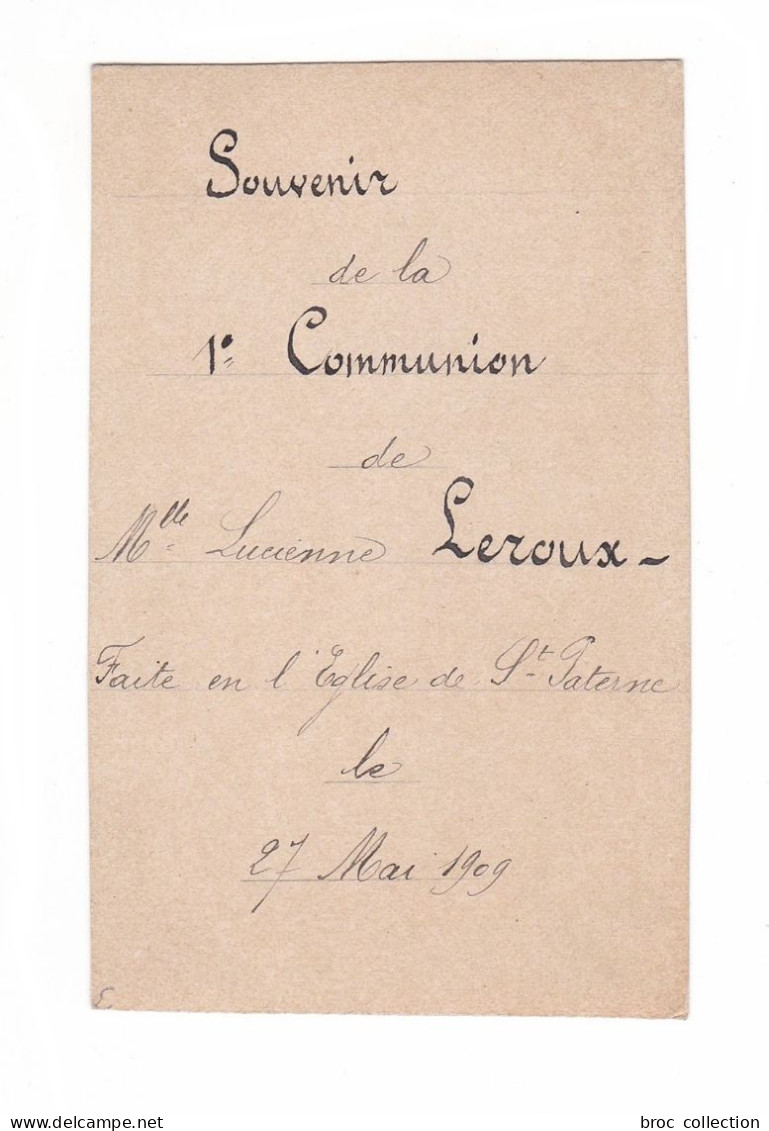 Souvenir
de la
1e Communion
de
Mlle Lucienne Leroux -
Faite en l'Eglise de St Paterne
le
27 Mai 1909
delcampe.net
broc collection